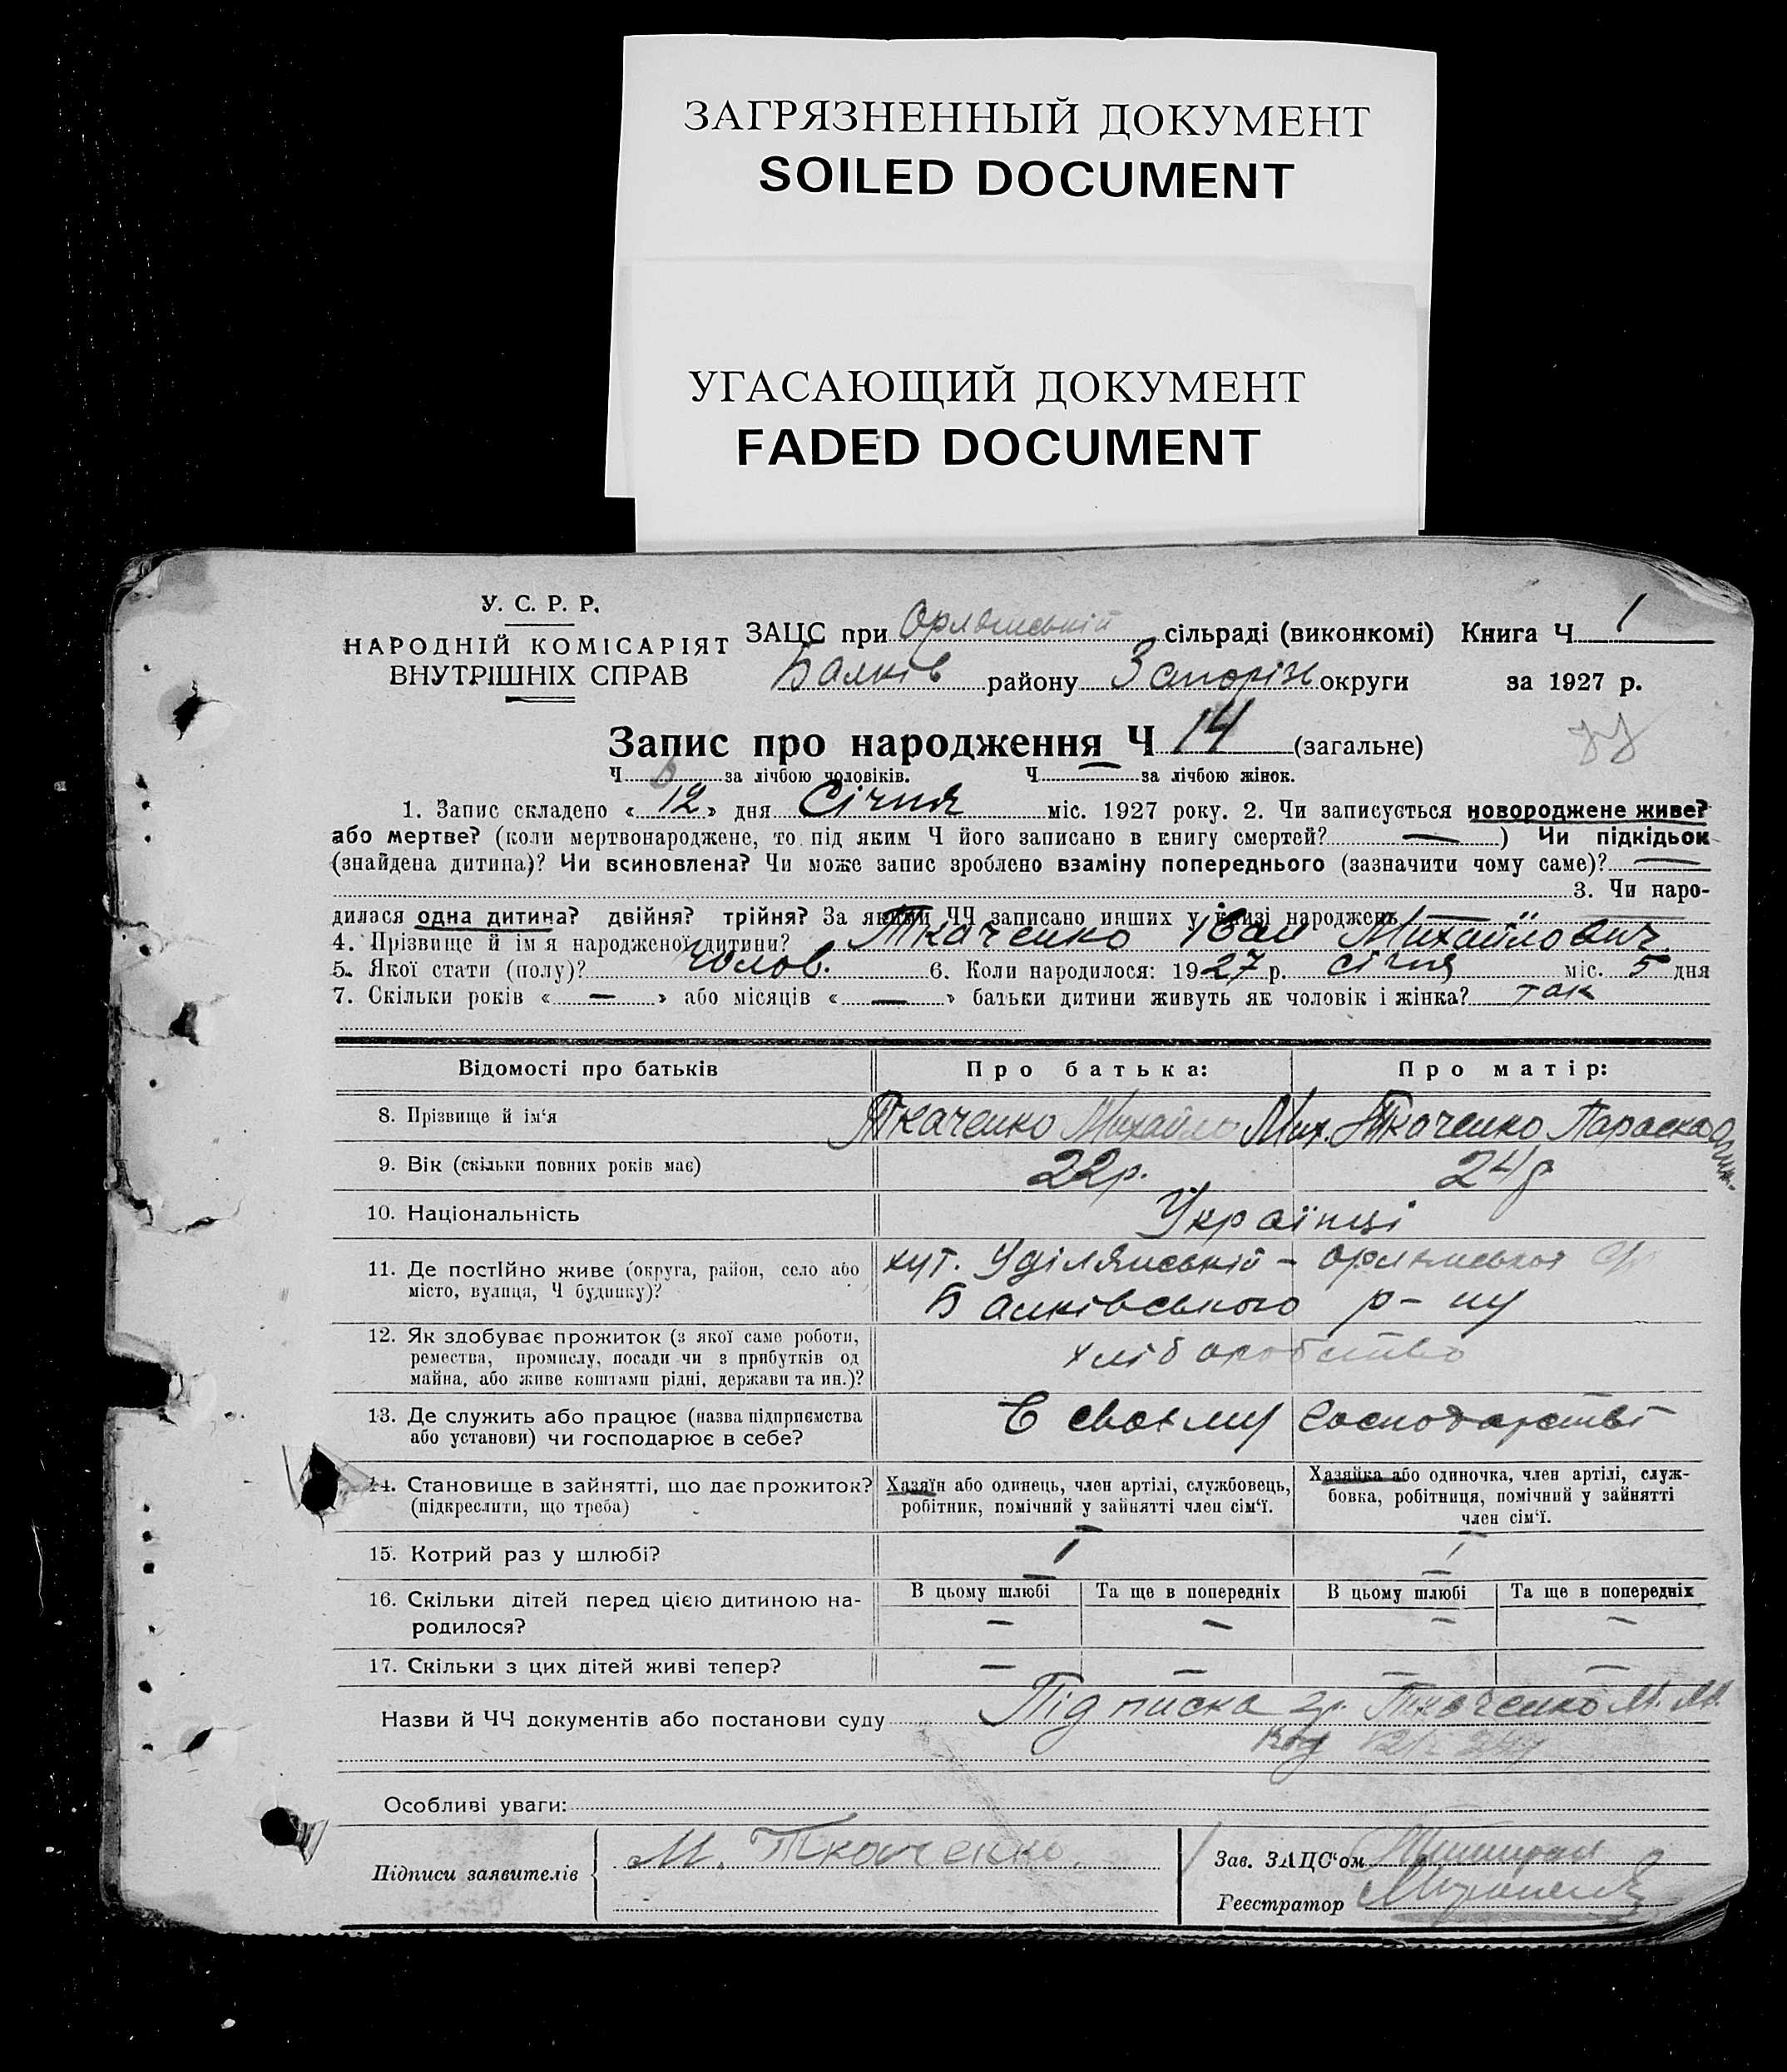 ЗАГРЯЗНЕННЫЙ ДОКУМЕНТ
SOILED DOCUMENT
УГАСАЮЩИЙ ДОКУМЕНТ
FADED DOCUMENT
У. С. Р. Р.
НАРОДНІЙ КОМІСАРІЯТ
ВНУТРІШНІХ СПРАВ
ЗАЦС при Орлянській сільраді (виконкомі) Книга Ч 1
Балків району Запоріж округи за 1927 р.
Запис про народження Ч 14 (загальне)
Ч за лічбою чоловіків. Ч — за лічбою жінок.
1. Запис складено «12» дня Січня міс. 1927 року. 2. Чи записується новороджене живе?
або мертве? (коли мертвонароджене, то під яким Ч його записано в книгу смертей? —) Чи підкідьок
(знайдена дитина)? Чи всиновлена? Чи може запис зроблено взаміну попереднього (зазначити чому саме)? —
3. Чи наро-
дилася одна дитина? двійня? трійня? За якими ЧЧ записано инших у книзі народжень —
4. Прізвище й ім'я народженої дитини? Ткаченко Іван Михайлович.
5. Якої стати (полу)? чолов. 6. Коли народилося: 1927 р. січня міс. 5 дня
7. Скільки років «—» або місяців «—» батьки дитини живуть як чоловік і жінка? так
Відомості про батьків Про батька: Про матір:
8. Прізвище й ім'я Ткаченко Михайло Мих. Ткаченко Параска
9. Вік (скільки повних років має) 22 р. 24 р
10. Національність Українці
11. Де постійно живе (округа, район, село або хут. Уділянській - Орлянської
місто, вулиця, Ч будинку)? Балківського р-ну
12. Як здобуває прожиток (з якої саме роботи, хліборобство
ремества, промислу, посади чи з прибутків од
майна, або живе коштами рідні, держави та ин.)?
13. Де служить або працює (назва підприємства В своєму господарстві
або установи) чи господарює в себе?
14. Становище в зайнятті, що дає прожиток? Хазяїн або одинець, член артілі, службовець, Хазяйка або одиночка, член артілі, служ-
(підкреслити, що треба) робітник, помічний у зайнятті член сім'ї. бовка, робітниця, помічний у зайнятті
член сім'ї.
15. Котрий раз у шлюбі? 1 1
16. Скільки дітей перед цією дитиною на- В цьому шлюбі Та ще в попередніх В цьому шлюбі Та ще в попередніх
родилося? — — — —
17. Скільки з цих дітей живі тепер? — — — —
Назви й ЧЧ документів або постанови суду Підписка гр. Ткаченко М. М.
Особливі уваги:
Підписи заявителів М. Ткаченко. Зав. ЗАЦС'ом
Реєстратор